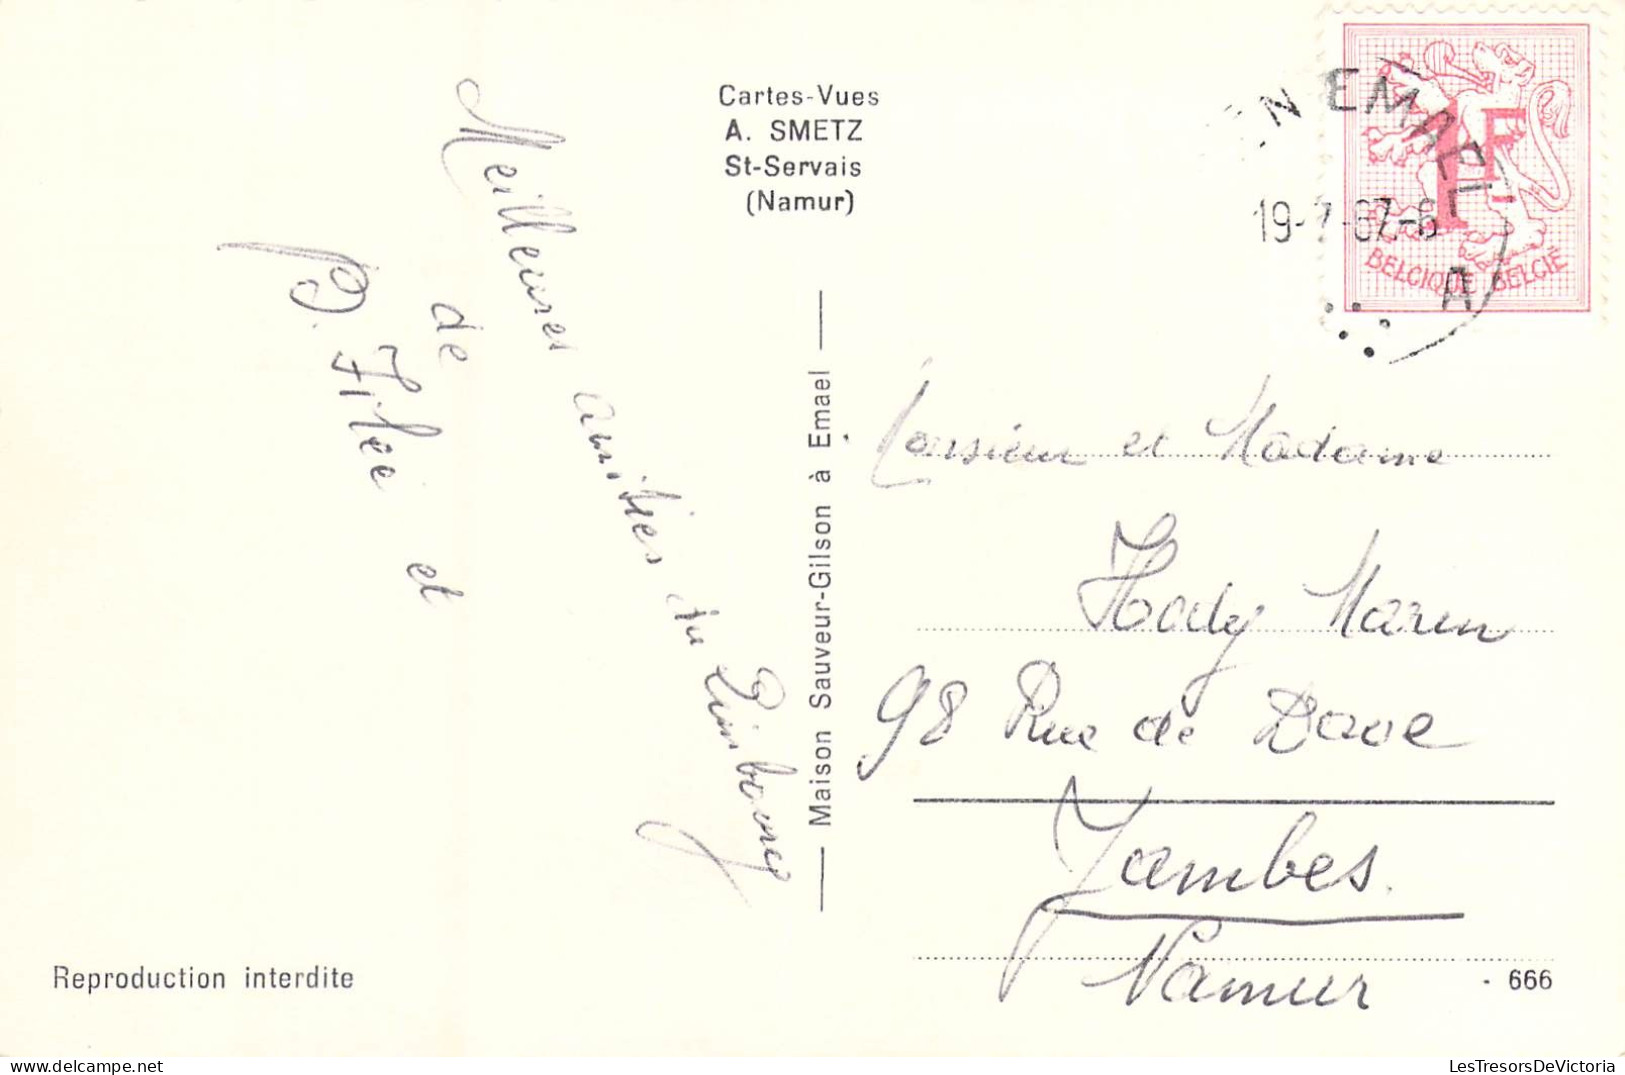 Cartes-Vues
A. SMETZ
St-Servais
(Namur)
EN EMAEL
19-7-67-
A
1F
BELGIQUE BELGIË
Meilleures amitiés du Limbourg
de
P. Filée et
Maison Sauveur-Gilson à Emael
Monsieur et Madame
Hody Marin
98 Rue de Dave
Jambes
Namur
Reproduction interdite
- 666
LesTresorsDeVictoria